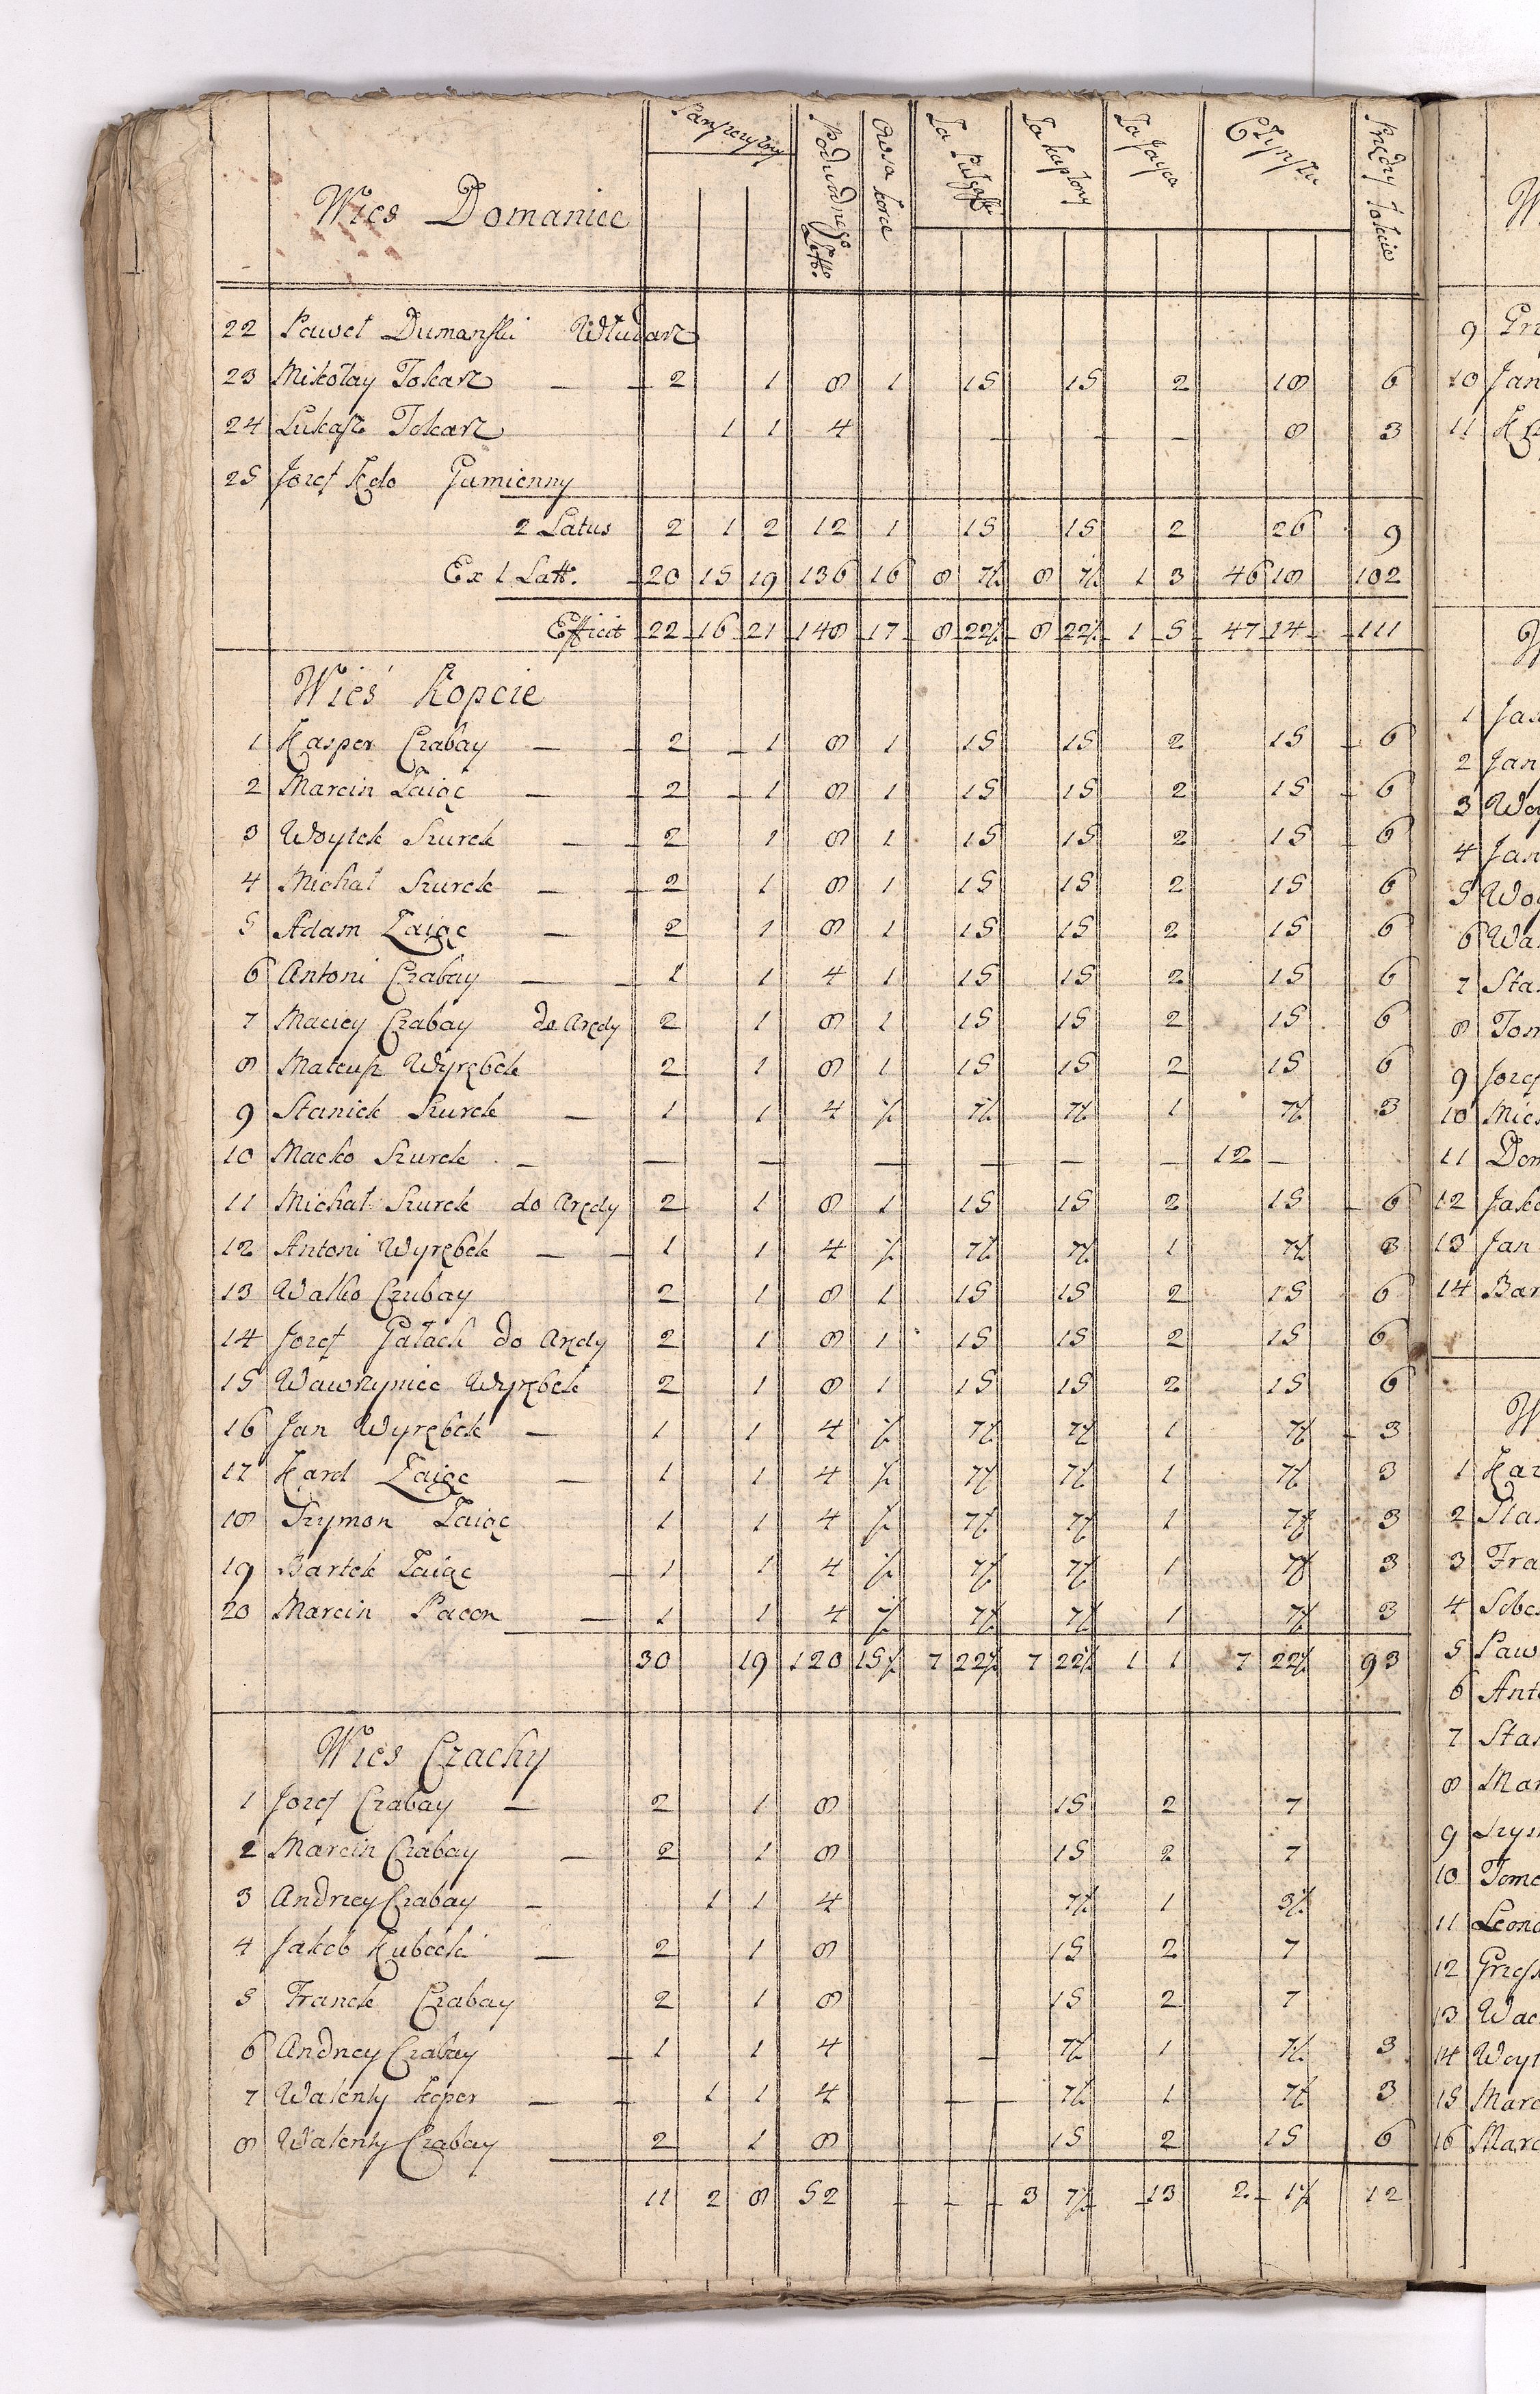 Wies Domanice
Owsa korce
Za kapłony
Za Jayca
Czynszu
22 Paweł Dumanski Włudarz
23 Mikołay Tokarz — 2 1 8 1 15 15 2 18 6
24 Łukasz Tokarz 1 1 4 — — — 8 3
25 Jozef Gumienny
2 Latus 2 1 2 12 1 15 15 2 26 9
Ex 1 Latt. 20 15 19 136 16 8 7½ 8 7½ 1 3 46 18 102
Efficit 22 16 21 148 17 8 22½ 8 22½ 1 5 47 14 111
Wieś Kopcie
1 Kasper Czabay — 2 1 8 1 15 15 2 15 6
2 Marcin Zaiąc — 2 1 8 1 15 15 2 15 6
3 Woytek Szurek — 2 1 8 1 15 15 2 15 6
4 Michał Szurek — 2 1 8 1 15 15 2 15 6
5 Adam Zaiąc — 2 1 8 1 15 15 2 15 6
6 Antoni Czabay — 1 1 4 1 15 15 2 15 6
7 Maciey Czabay do Arędy 2 1 8 1 15 15 2 15 6
8 Mateusz Wyrębek 2 1 8 1 15 15 2 15 6
9 Staniek Szurek — 1 1 4 ½ 7½ 7½ 1 7½ 3
10 Maćko Szurek — — — — — — — 12 —
11 Michał Szurek do Arędy 2 1 8 1 15 15 2 15 6
12 Antoni Wyrębek — 1 1 4 ½ 7½ 7½ 1 7½ 3
13 Walko Czubay 2 1 8 1 15 15 2 15 6
14 Jozef Gałach do Arędy 2 1 8 1 15 15 2 15 6
15 Wawrzyniec Wyrębek 2 1 8 1 15 15 2 15 6
16 Jan Wyrębek — 1 1 4 ½ 7½ 7½ 1 7½ 3
17 Karol Zaiąc — 1 1 4 ½ 7½ 7½ 1 7½ 3
18 Szymon Zaiąc 1 1 4 ½ 7½ 7½ 1 7½ 3
19 Bartek Zaiąc 1 1 4 ½ 7½ 7½ 1 7½ 3
20 Marcin Pacon — 1 1 4 ½ 7½ 7½ 1 7½ 3
30 19 120 15½ 7 22½ 7 22½ 1 1 7 22½ 93
Wies Czachy
1 Jozef Czabay — 2 1 8 15 2 7
2 Marcin Czabay — 2 1 8 15 2 7
3 Andrzey Czabay — 1 1 4 7½ 1 3½
4 Jakob Kubecki — 2 1 8 15 2 7
5 Franek Czabay 2 1 8 15 2 7
6 Andrzey Czabay 1 1 4 — 7½ 1 7½ 3
7 Walenty Koper — 1 1 4 — — 7½ 1 7½ 3
8 Walenty Czabay 2 1 8 15 2 15 6
11 2 8 52 — — — 3 7½ 13 2 1½ 12
9
10 Jan
11
1
2 Jan
3
4 Jan
5
6
7
8
9
10
11
12
13 Jan
14
1
2
3
4
5
6
7
8
9
10
11
12
13
14
15
16